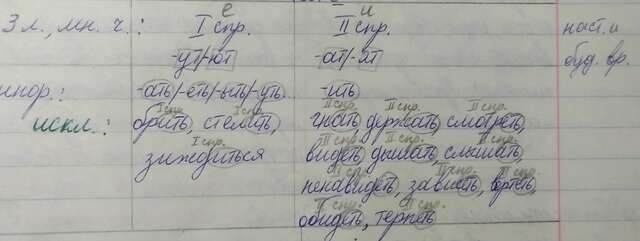 е и
3 л., мн. ч.: I спр. II спр. наст. и
-ут/-ют -ат/-ят буд. вр.
-ать/-еть/-ыть/-уть -ить
I спр. I спр. II спр. II спр. II спр.
искл.: брить, стелить, гнать, держать, смотреть,
I спр. II спр. II спр. II спр.
зиждиться видеть, дышать, слышать,
II спр. II спр. II спр.
ненавидеть, зависеть, вертеть
II спр. II спр.
обидеть, терпеть